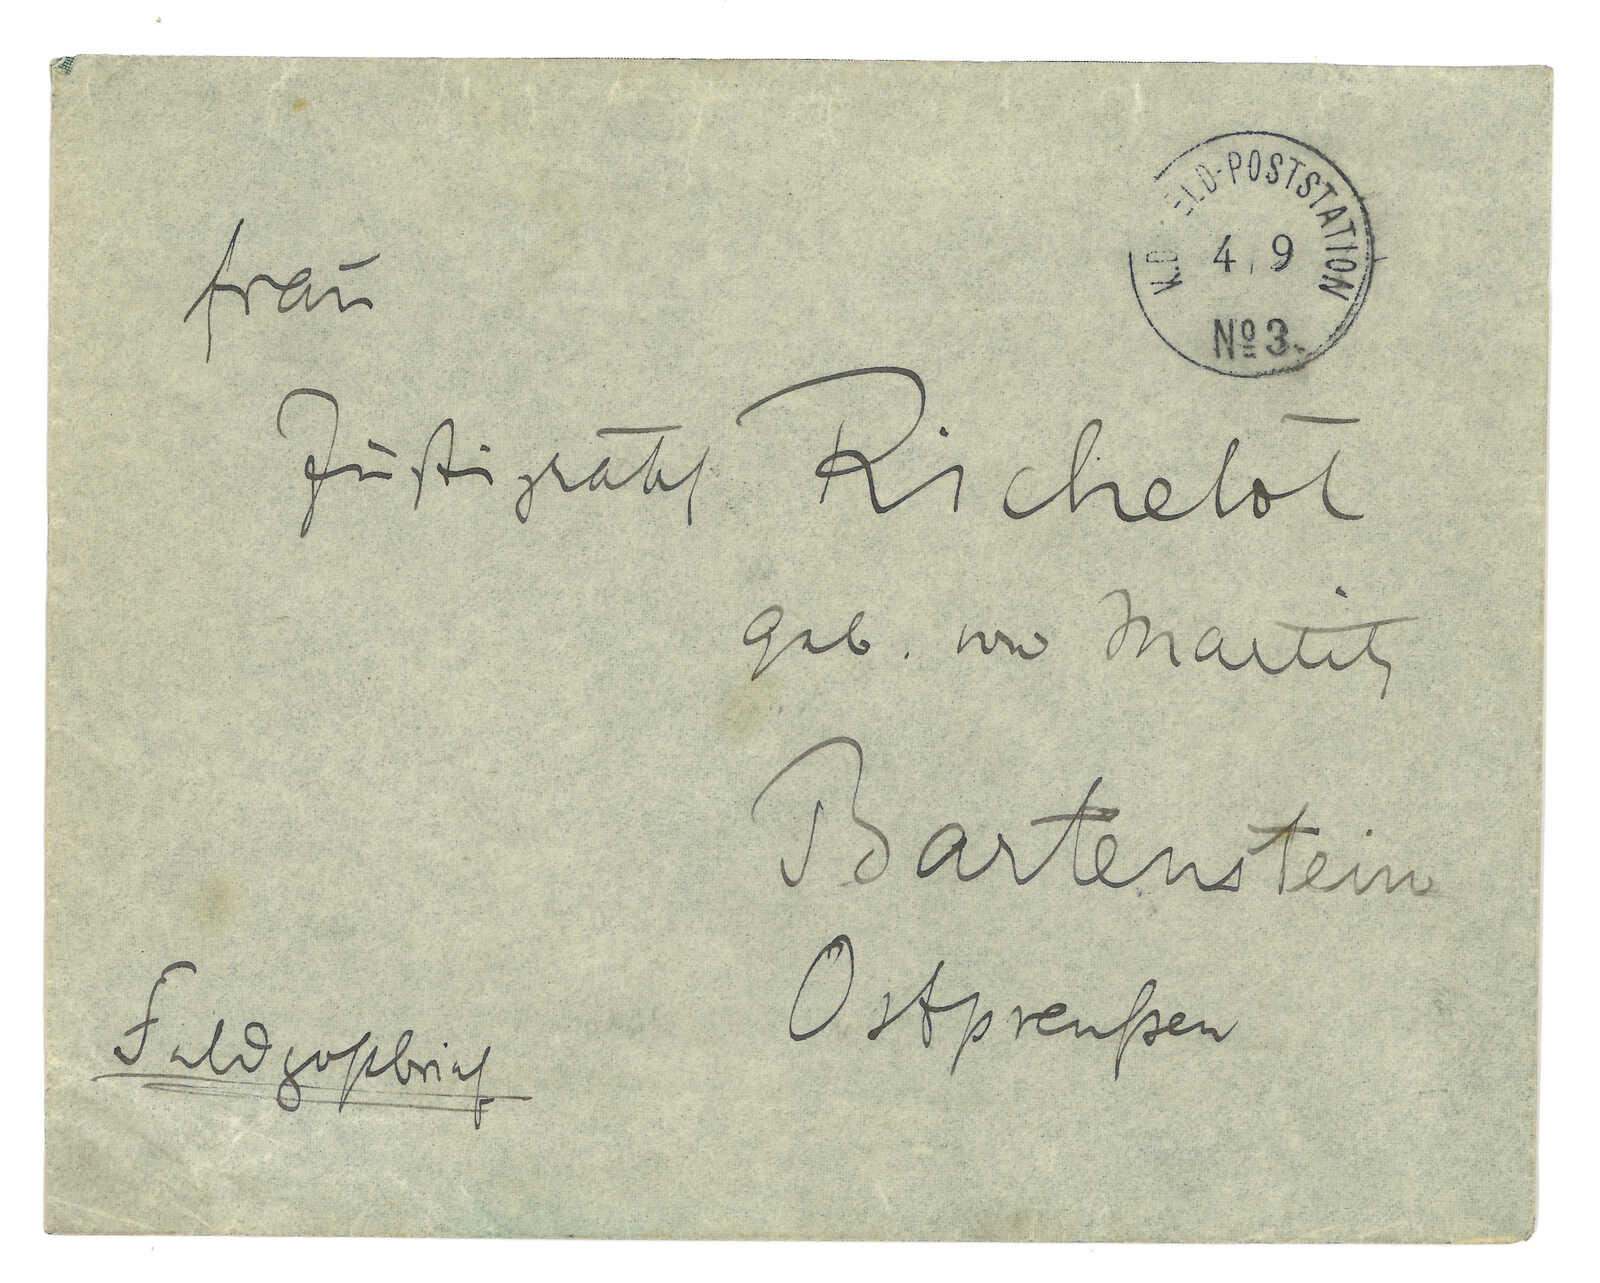 K.D. FELD-POSTSTATION
4, 9
Nº 3.
Frau
Justizrath Richelot
geb. von Martitz
Bartenstein
Ostpreußen
Feldpostbrief